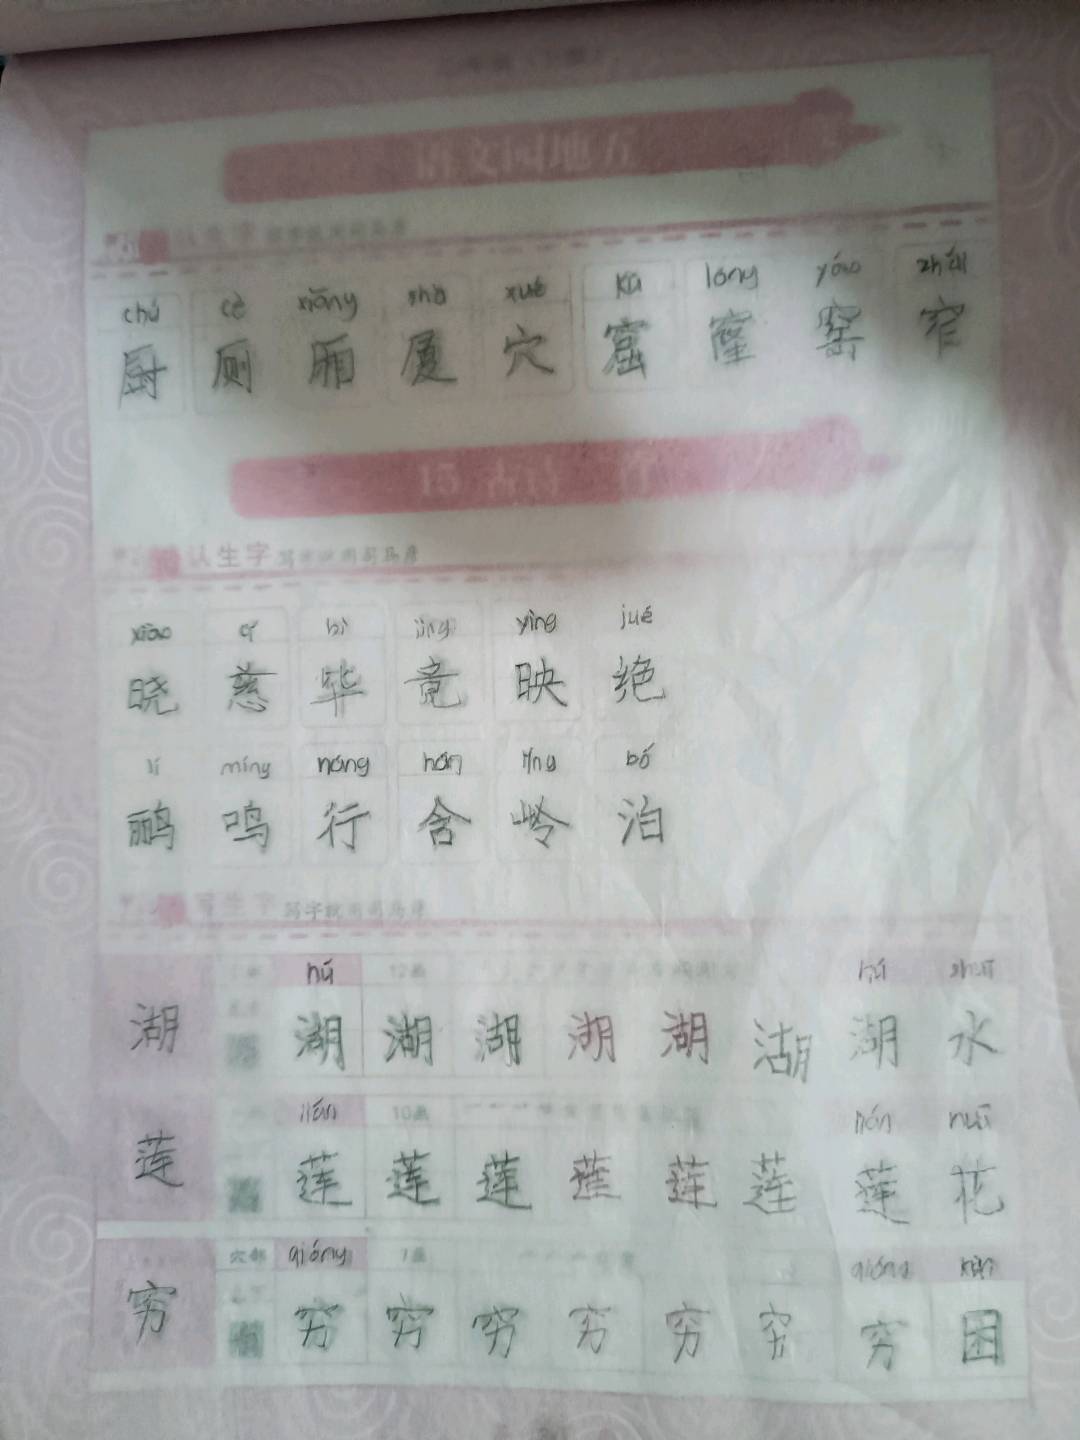 语文园地五
认生字
chú cè xiāng shà xué kū lóng yáo zhǎi
厨 厕 厢 厦 穴 窟 窿 窑 窄
15 古诗二首
认生字 写字就用司马彦
xiǎo cí bì jìng yìng jué
晓 慈 毕 竟 映 绝
lí míng háng hán lǐng bó
鹂 鸣 行 含 岭 泊
写生字 写字就用司马彦
hú 12画 hú shuǐ
湖 湖 湖 湖 湖 湖 湖 湖 水
lián 10画 huā
莲 莲 莲 莲 莲 莲 莲 莲 花
穴部 qióng 7画 qióng kùn
穷 穷 穷 穷 穷 穷 穷 穷 困